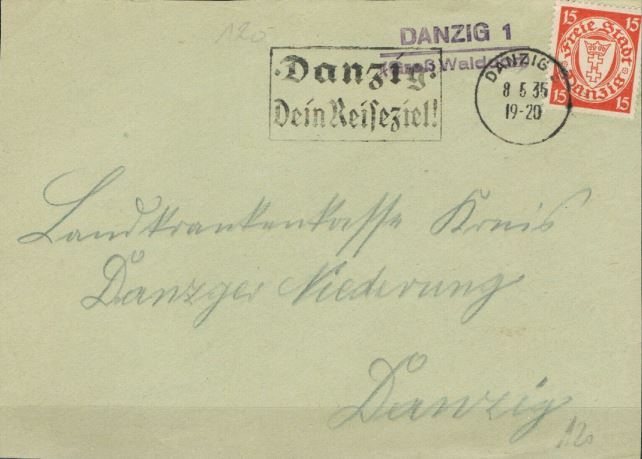 120
DANZIG 1
Groß Wald
Danzig
Dein Reiseziel!
DANZIG
8 5 35
19-20
15 15
Freie Stadt
Danzig
15 15
Landkrankenkasse Kreis
Danzger Niederung
Danzig
120